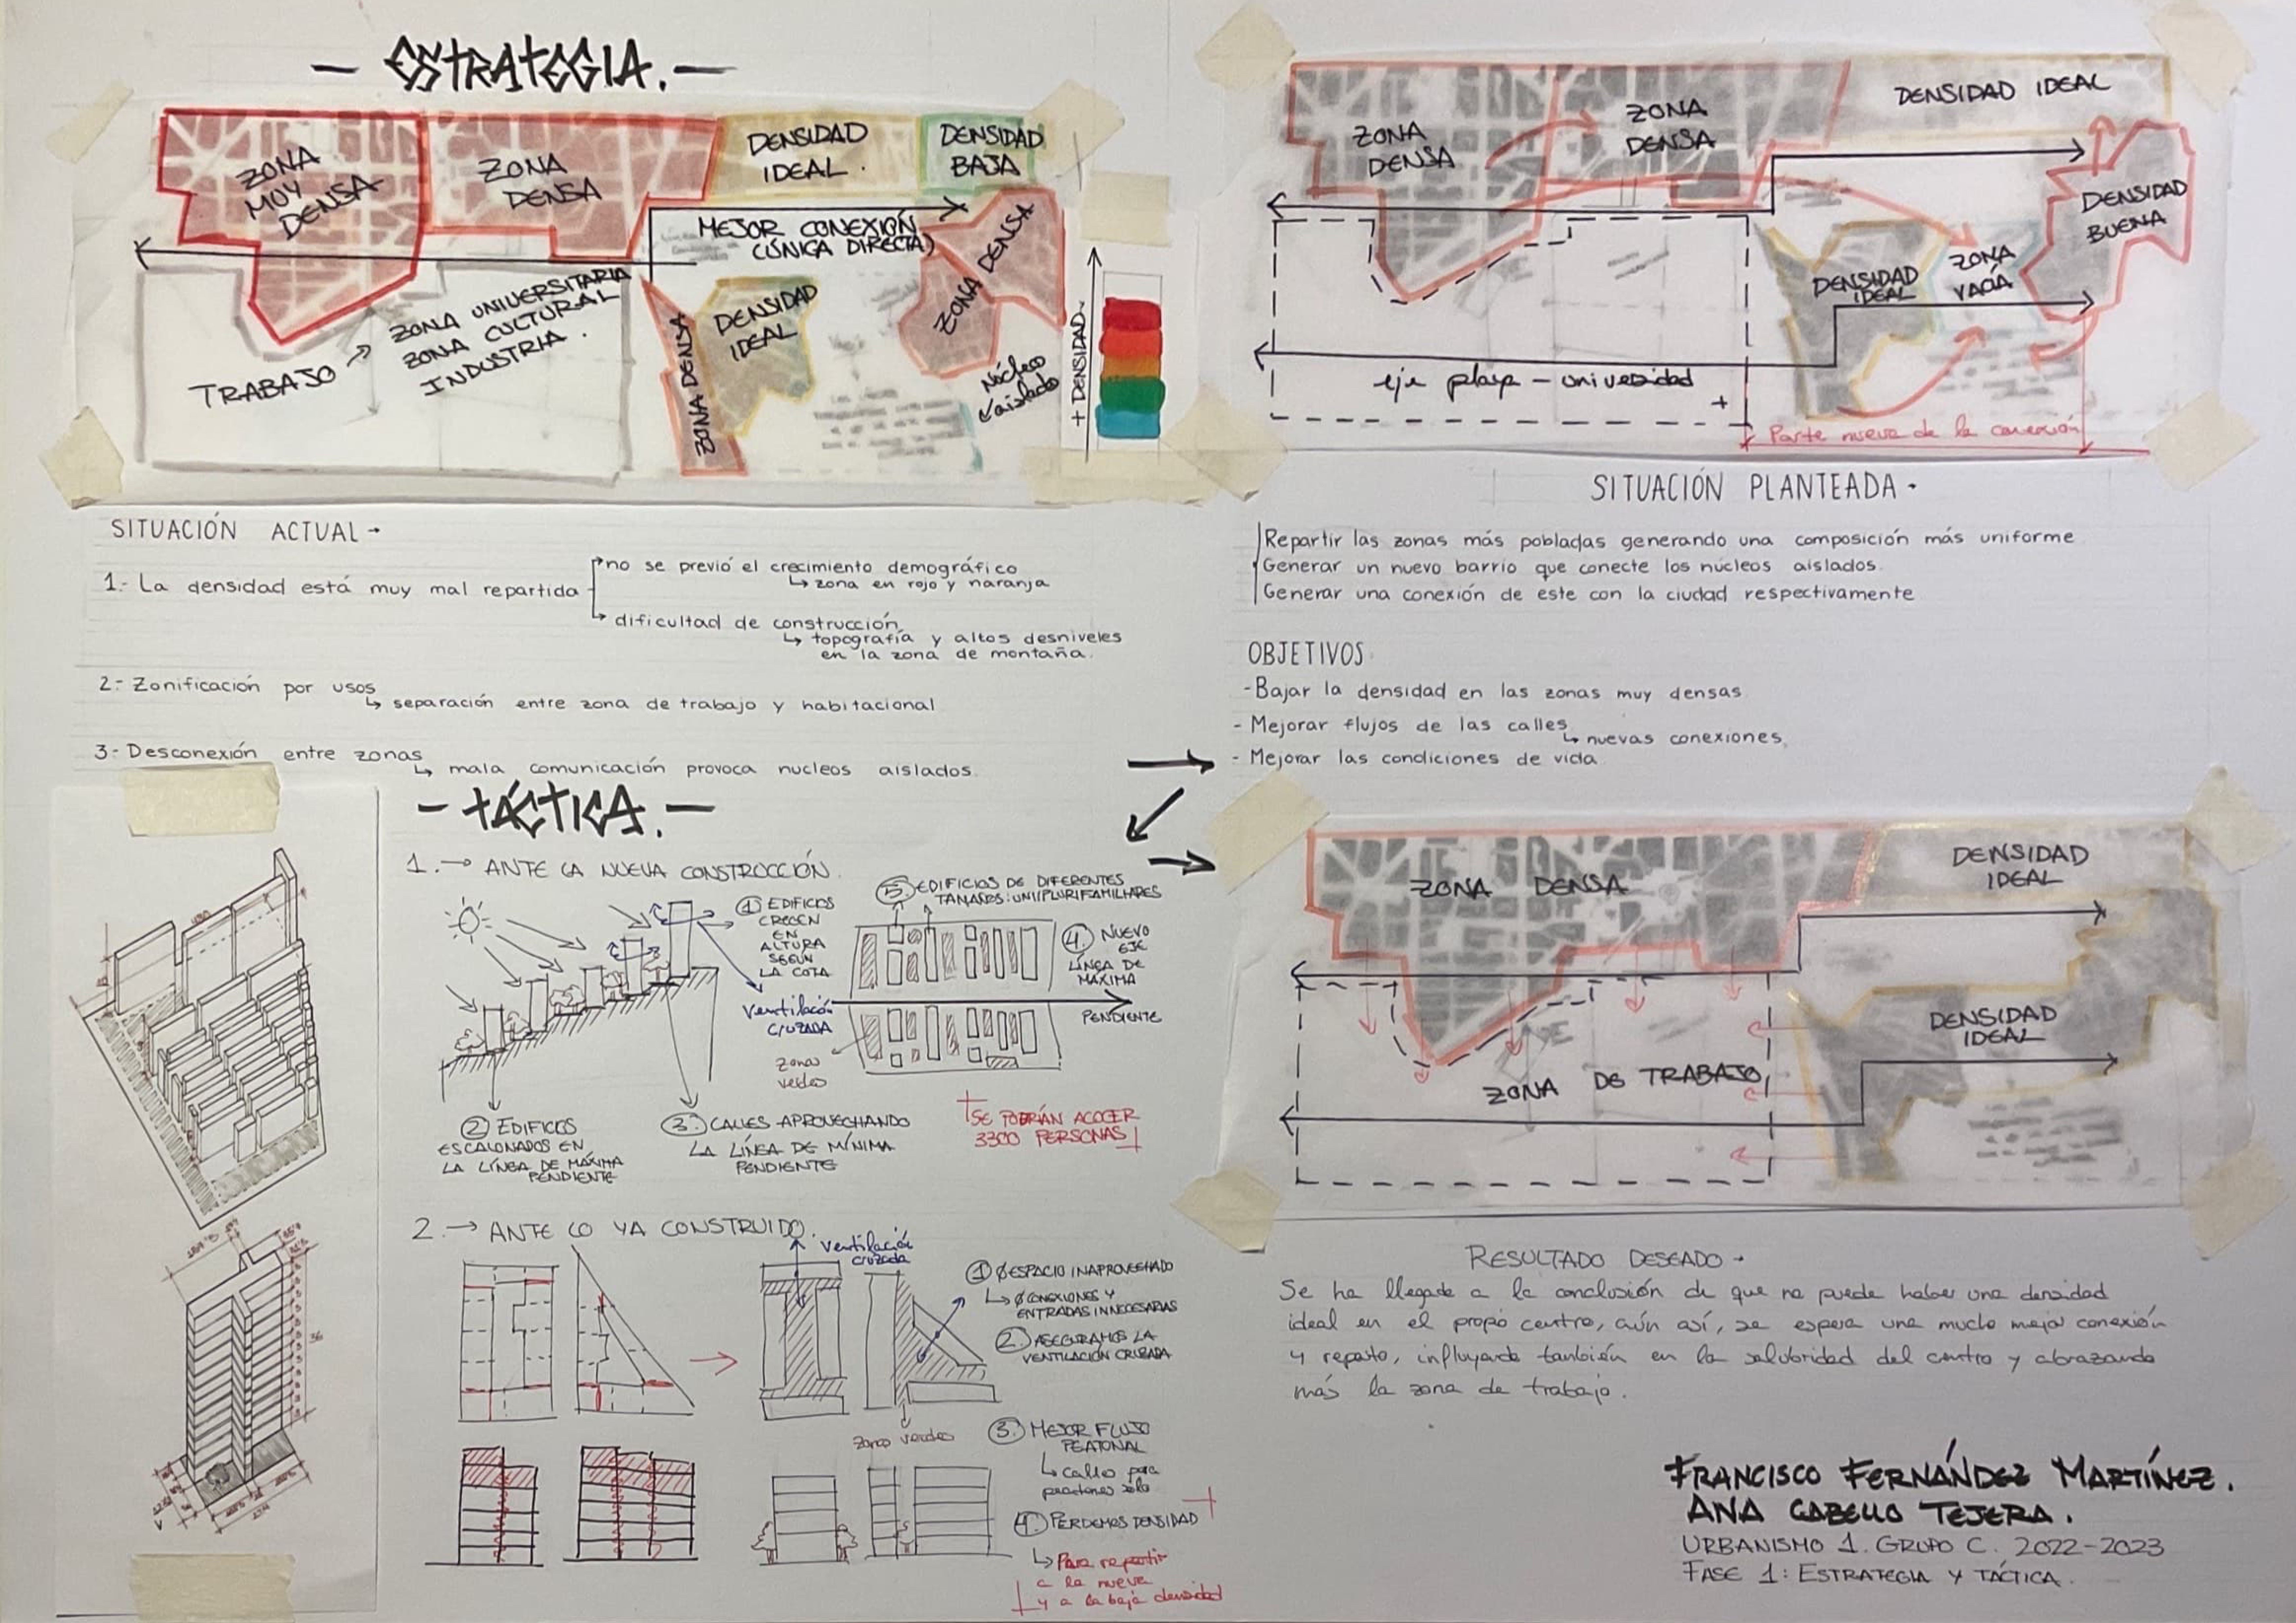 — ESTRATEGIA. —
ZONA
MUY
DENSA
ZONA
DENSA
DENSIDAD
IDEAL.
DENSIDAD
BAJA
MEJOR CONEXIÓN
(ÚNICA DIRECTA)
ZONA DENSA
TRABAJO → ZONA UNIVERSITARIA
ZONA CULTURAL
INDUSTRIA.
ZONA DENSA
DENSIDAD
IDEAL
Núcleo
aislado
+ DENSIDAD-
SITUACIÓN ACTUAL -
1.- La densidad está muy mal repartida
no se previó el crecimiento demográfico
↳ zona en rojo y naranja
dificultad de construcción
↳ topografía y altos desniveles
en la zona de montaña.
2.- Zonificación por usos
↳ separación entre zona de trabajo y habitacional
3.- Desconexión entre zonas
↳ mala comunicación provoca nucleos aislados.
ZONA
DENSA
ZONA
DENSA
DENSIDAD IDEAL
DENSIDAD
BUENA
DENSIDAD
IDEAL
ZONA
VACÍA
eje playa - universidad
+
Parte nueva de la conexión
SITUACIÓN PLANTEADA -
Repartir las zonas más pobladas generando una composición más uniforme
Generar un nuevo barrio que conecte los núcleos aislados.
Generar una conexión de este con la ciudad respectivamente
OBJETIVOS
-Bajar la densidad en las zonas muy densas
- Mejorar flujos de las calles
↳ nuevas conexiones
- Mejorar las condiciones de vida
— TÁCTICA. —
1. → ANTE LA NUEVA CONSTRUCCIÓN.
① EDIFICIOS
CRECEN
EN
ALTURA
SEGÚN
LA COTA
Ventilación
CRUZADA
⑤ EDIFICIOS DE DIFERENTES
TAMAÑOS: UNI/PLURIFAMILIARES
④ NUEVO
EJE
LÍNEA DE
MÁXIMA
PENDIENTE
zonas
verdes
② EDIFICIOS
ESCALONADOS EN
LA LÍNEA DE MÁXIMA
PENDIENTE
③ CALLES APROVECHANDO
LA LÍNEA DE MÍNIMA
PENDIENTE
SE PODRÍAN ACOGER
3300 PERSONAS
2. → ANTE LO YA CONSTRUIDO.
Ventilación
cruzada
① Ø ESPACIO INAPROVECHADO
↳ Ø CONEXIONES Y
ENTRADAS INNECESARIAS
② ASEGURAMOS LA
VENTILACIÓN CRUZADA
zonas verdes
③ MEJOR FLUJO
PEATONAL
↳ calles para
peatones solo
④ PERDEMOS DENSIDAD
↳ Para repartir
a la nueva
y a la baja densidad
36
ZONA DENSA
DENSIDAD
IDEAL
DENSIDAD
IDEAL
ZONA DE TRABAJO
RESULTADO DESEADO -
Se ha llegado a la conclusión de que no puede haber una densidad
ideal en el propio centro, aún así, se espera una mucho mejor conexión
y reparto, influyendo también en la salubridad del centro y abrazando
más la zona de trabajo.
FRANCISCO FERNÁNDEZ MARTÍNEZ.
ANA CABELLO TEJERA.
URBANISMO 1. GRUPO C. 2022-2023
FASE 1: ESTRATEGIA Y TÁCTICA.